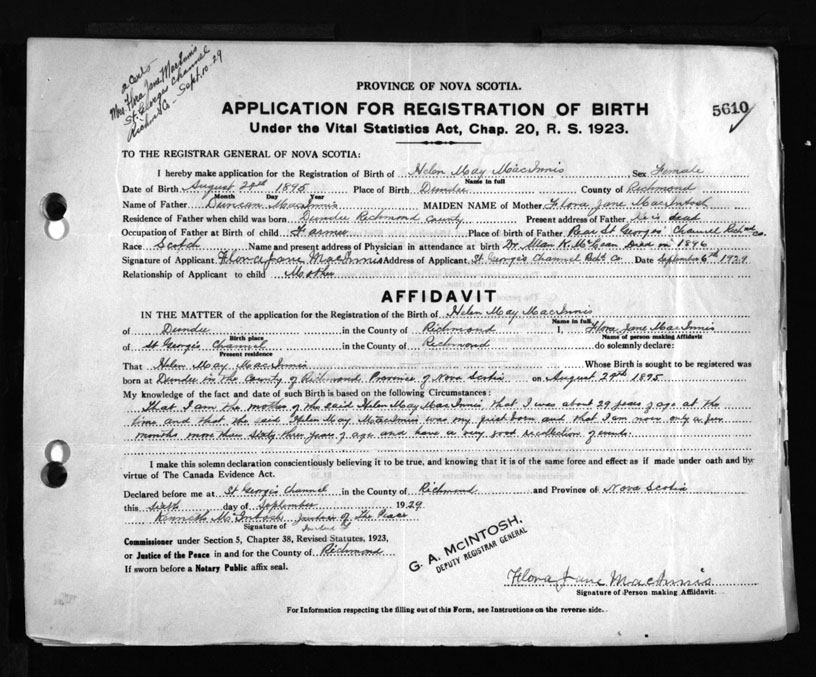 2 Certs
Mrs Flora Jane MacInnis
St. Georges Channel
Richmond Co - Sept. 10-29
PROVINCE OF NOVA SCOTIA.
APPLICATION FOR REGISTRATION OF BIRTH
5610
Under the Vital Statistics Act, Chap. 20, R. S. 1923.
TO THE REGISTRAR GENERAL OF NOVA SCOTIA:
I hereby make application for the Registration of Birth of Helen May MacInnis Sex Female
Name in full
Date of Birth August 29th 1895 Place of Birth Dundee County of Richmond
Month Day Year
Name of Father Duncan MacInnis MAIDEN NAME of Mother Flora Jane MacIntosh
Residence of Father when child was born Dundee Richmond County Present address of Father he is dead
Occupation of Father at Birth of child Farmer Place of birth of Father Rear St Georges Channel Rich'md Co.
Race Scotch Name and present address of Physician in attendance at birth Dr Allan K. McLean Died in 1896
Signature of Applicant Flora Jane MacInnis Address of Applicant St. George's Channel Rich. Co. Date September 6th 1929
Relationship of Applicant to child Mother
AFFIDAVIT
IN THE MATTER of the application for the Registration of the Birth of Helen May MacInnis
Name in full
of Dundee in the County of Richmond I, Flora Jane MacInnis
Birth place Name of person making Affidavit
of St George's Channel in the County of Richmond do solemnly declare:
Present residence
That Helen May MacInnis Whose Birth is sought to be registered was
born at Dundee in the County of Richmond Province of Nova Scotia on August 29th 1895
My knowledge of the fact and date of such Birth is based on the following Circumstances:
That I am the mother of the said Helen May MacInnis that I was about 29 years of age at the
time and that the said Helen May MacInnis was my first born and that I am now only a few
months more than sixty three years of age and have a very good recollection of events.
I make this solemn declaration conscientiously believing it to be true, and knowing that it is of the same force and effect as if made under oath and by
virtue of The Canada Evidence Act.
Declared before me at St George's Channel in the County of Richmond and Province of Nova Scotia
this sixth day of September 1929
Kenneth McIntosh Justice of the Peace
Signature of
Commissioner under Section 5, Chapter 38, Revised Statutes, 1923,
or Justice of the Peace in and for the County of Richmond
If sworn before a Notary Public affix seal.
G. A. McINTOSH,
DEPUTY REGISTRAR GENERAL
Flora Jane MacInnis
Signature of Person making Affidavit.
For Information respecting the filling out of this Form, see Instructions on the reverse side.